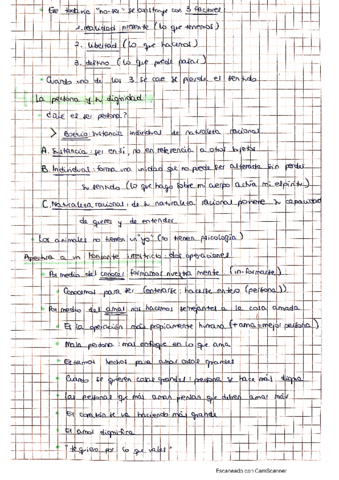 Ese "no-ser" se construye con 3 factores:
1. realidad presente (lo que tenemos)
2. libertad (lo que hacemos)
3. destino (lo que puede pasar)
Cuando uno de los 3 se cae se pierde el sentido
La persona y su dignidad
¿Qué es ser persona?
> Boecio: sustancia individual de naturaleza racional
A. Sustancia: ser en sí, no en referencia a otros sujetos
B. Individual: forma una unidad que no puede ser alterada sin perder
su sentido (lo que hago sobre mi cuerpo actúa mi espíritu)
C. Naturaleza racional: de su naturaleza racional proviene su capacidad
de querer y de entender
Los animales no tienen un "yo" (no tienen psicología)
Apertura a un horizonte infinito: dos operaciones
Por medio del conocer formamos nuestra mente (in-formarse)
Conocemos para ser (enterarse: hacerse entero (persona))
Por medio del amar nos hacemos semejantes a la cosa amada
Es la operación más propiamente humana (+ama=mejor persona)
Mala persona: mal enfoque en lo que ama
Estamos hechos para amar cosas grandes
Cuando se quieren cosas grandes: persona se hace más digna
Las personas que más aman piensan que deben amar más
El corazón se va haciendo más grande
El amor dignifica
"te quiero por lo que vales"
Escaneado con CamScanner